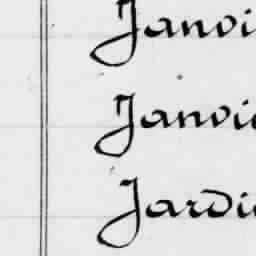 Janvi
Janvie
Jardi